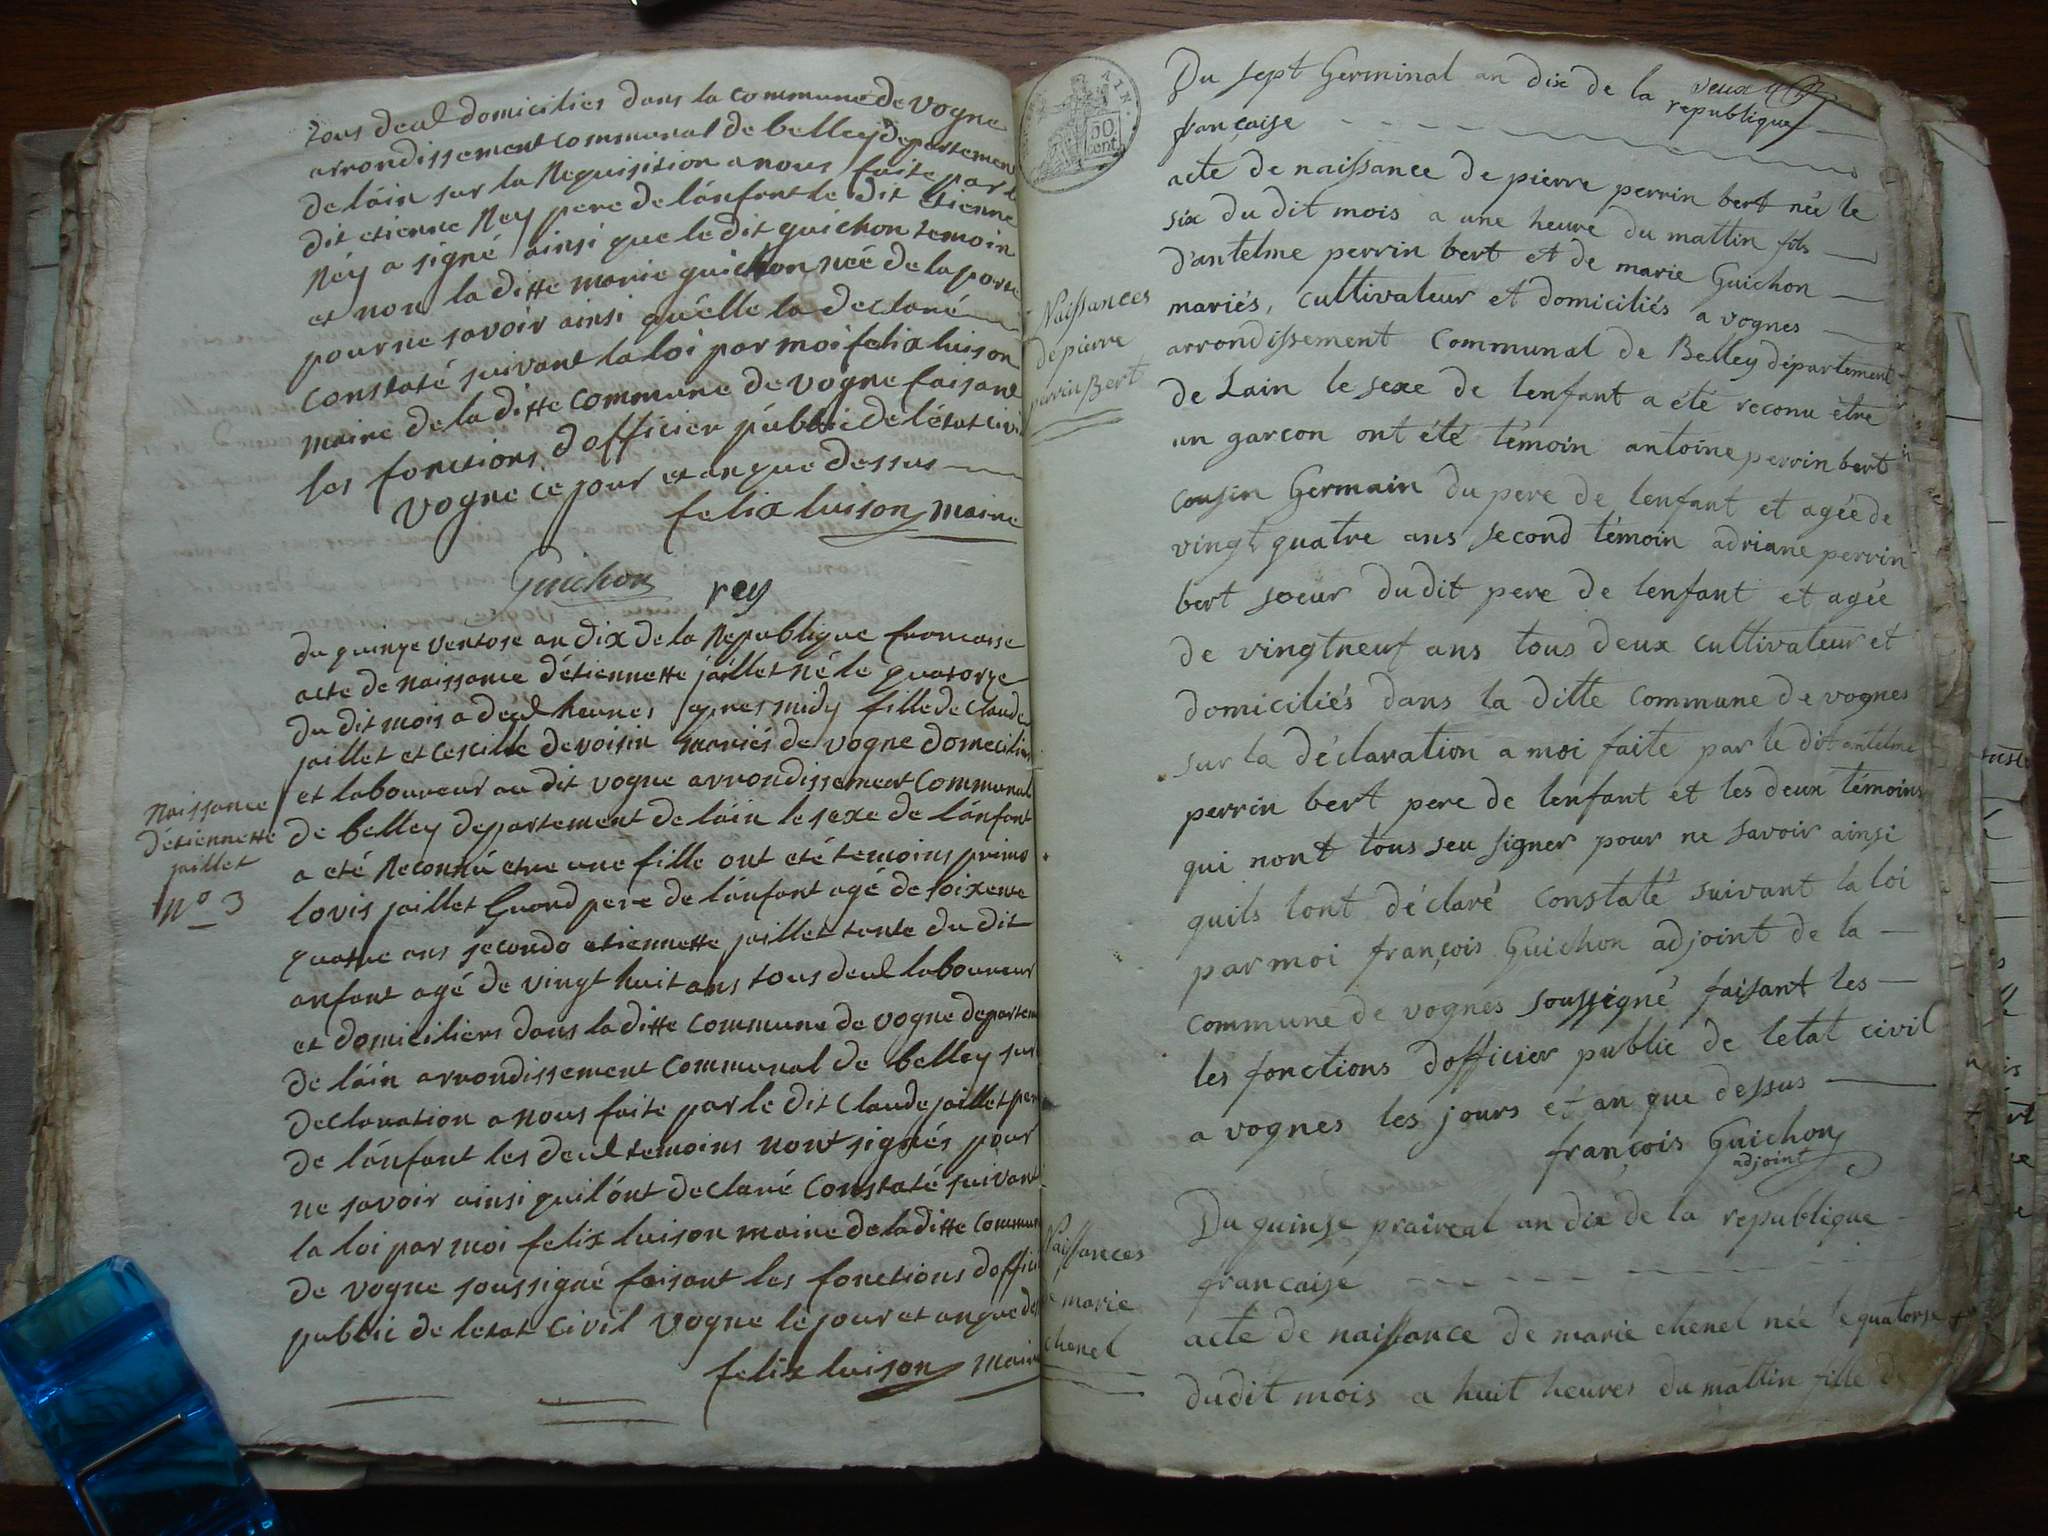 tous deul domiciliés dans la commune de vogne
arrondissement communal de belley departement
de láin sur la Requisition a nous faite par le
dit etienne Rey pere de lánfant le dit etienne
Réy a signé ainsi que le dit guichon temoin
et non la ditte marie guichon neé de la porte
pour ne savoir ainsi quélle la declaré
Constaté suivant la loi par moi felix luison
maire de la ditte commune de vogne faisant
les fonctions dofficier públic de létat civil
vogne ce jour et an que dessus
felix luison maire
Guichon rey
du quinze ventose an dix de la Republique francasse
acte de naissance détiennette jaillet né le quatorze
du dit mois a deul heures apres midy fille de Claude
jaillet et Cescille devoisin mariés de vogne domecilies
et laboureur au dit vogne arrondissement Communal
de belley departement de láin le sexe de lánfant
a eté Reconnú etre une fille ont eté temoins primo
lovis jaillet Grand pere de lánfant agé de soixente
quatre ans secondo etiennette jaillet tante du dit
anfant agé de vingt huit ans tous deul laboureur
et domiciliers dans la ditte Commune de vogne departem
de láin arrondissement Communal de belley sur
declaration a nous faite par le dit Claude jaillet pere
de lánfant les deul temoins nont signés pour
ne savoir ainsi quil ónt declaré Constaté suivant
la loi par moi felix luison maire de la ditte Commune
de vogne soussigné faisant les fonctions doffici
public de letat Civil vogne le jour et an que des
felix luison maire
naissance
détiennette
jaillet
nº 3
Du sept Germinal an dix de la republique
française
acte de naissance de pierre perrin bert née le
six du dit mois a une heure du mattin fils
d'antelme perrin bert et de marie Guichon
mariés, cultivateur et domiciliés a vognes
arrondissement Communal de Belley département
de Lain le sexe de lenfant a été reconu être
un garcon ont été témoin antoine perrin bert
cousin Germain du pere de lenfant et agée de
vingt quatre ans second témoin adriane perrin
bert soeur dudit pere de lenfant et agée
de vingtneuf ans tous deux cultivateur et
domiciliés dans la ditte commune de vognes
sur la déclaration a moi faite par le dit antelme
perrin bert pere de lenfant et les deux témoins
qui nont tous seu signer pour ne savoir ainsi
quils lont déclaré constaté suivant la loi
par moi françois Guichon adjoint de la
commune de vognes soussigné faisant les
les fonctions dofficier public de letat civil
a vognes les jours et an que dessus
françois Guichon
adjoint
Du quinse praireal an dix de la republique
francaise
acte de naissance de marie chenel née le quatorse
dudit mois a huit heures du mattin fille de
Naissances
de pierre
perrin Bert
Naissances
marie
chenel
50
cent.